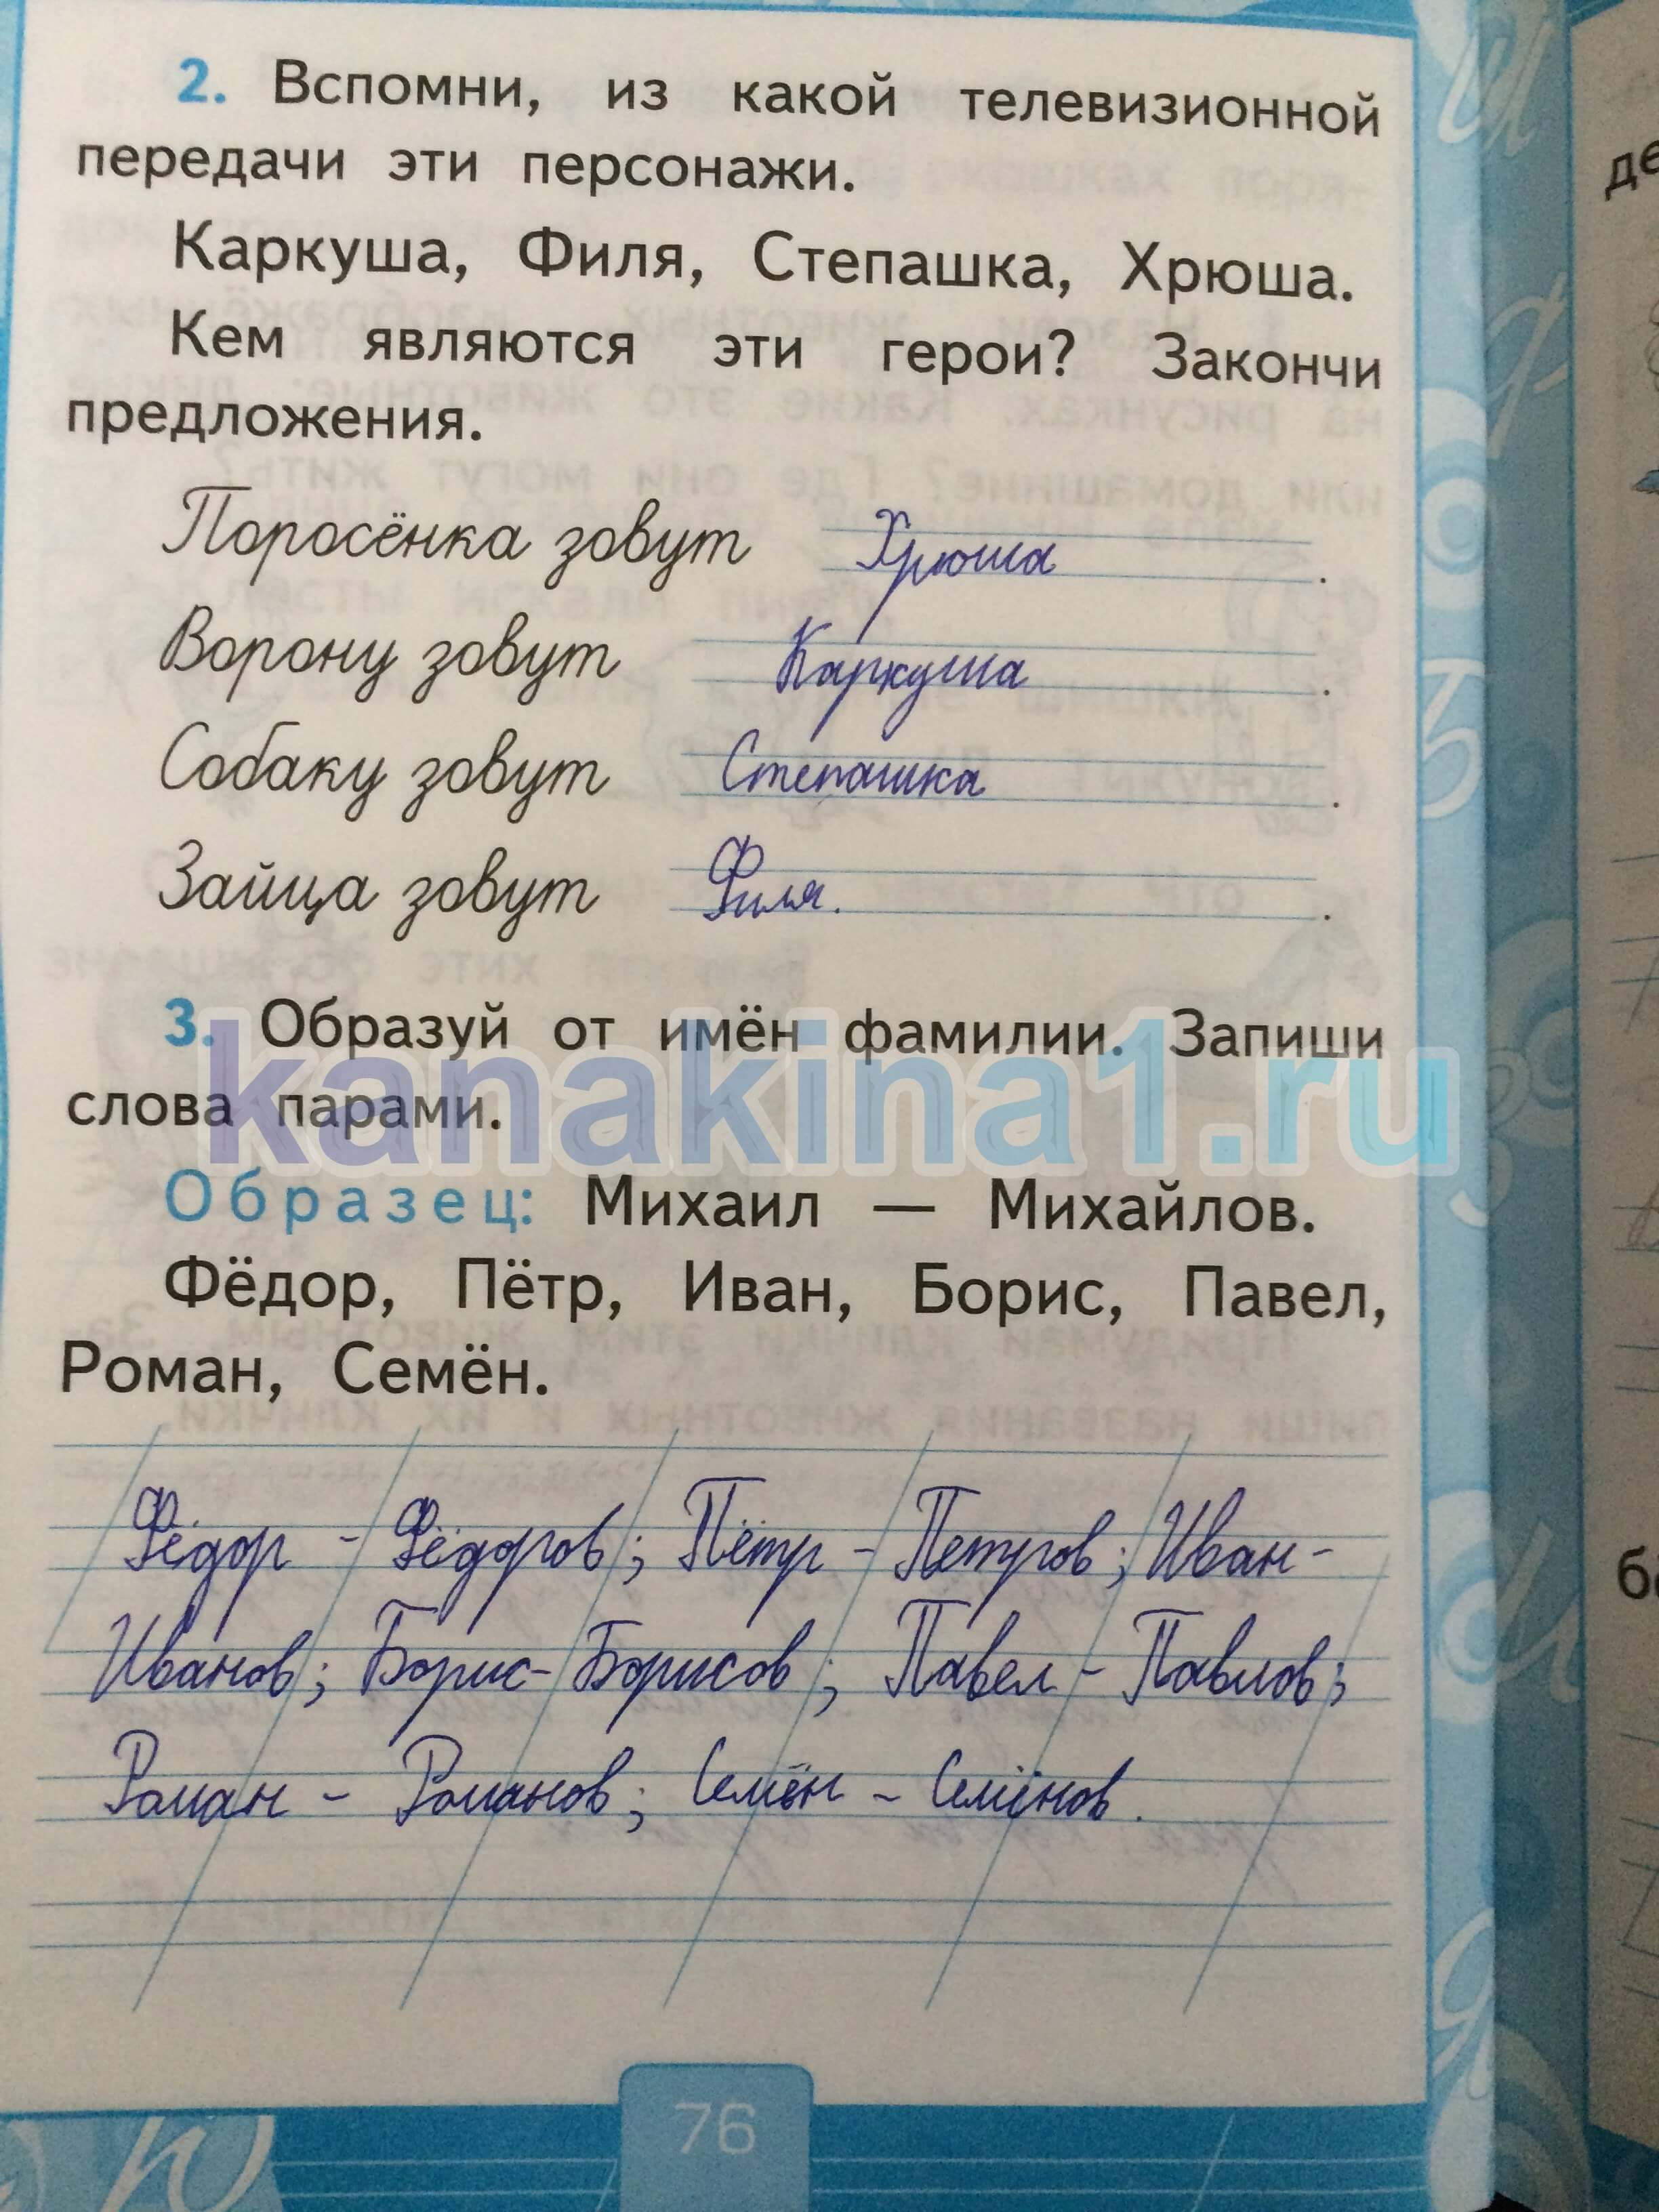 2. Вспомни, из какой телевизионной
передачи эти персонажи.
Каркуша, Филя, Степашка, Хрюша.
Кем являются эти герои? Закончи
предложения.
Поросёнка зовут Хрюша.
Ворону зовут Каркуша.
Собаку зовут Степашка.
Зайца зовут Филя. .
3. Образуй от имён фамилии. Запиши
слова парами.
kanakina1.ru
Образец: Михаил — Михайлов.
Фёдор, Пётр, Иван, Борис, Павел,
Роман, Семён.
Фёдор - Фёдоров; Пётр - Петров; Иван-
Иванов; Борис- Борисов; Павел - Павлов;
Роман - Романов; Семён - Семёнов.
76